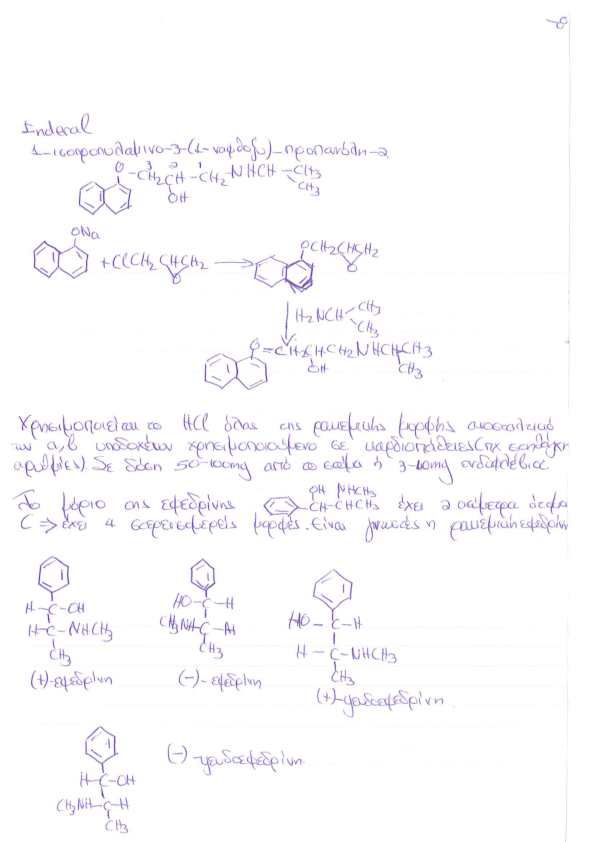 8
Inderal
1-ισοπροπυλαμινο-3-(1-ναφθοξυ)-προπανόλη-2
O-CH2CH-CH2NHCH-CH3
3 2 1
OH CH3
ONa
+ClCH2CHCH2
O
OCH2CHCH2
O
H2NCH CH3
CH3
O-CH2CHCH2NHCHCH3
OH CH3
Χρησιμοποιείται το HCl άλας της ρακεμικής μορφής ανασταλτικό
των α,β υποδοχέων χρησιμοποιούμενο σε καρδιοπάθειες (πχ στηθάγχη
αρυθμίες). Σε δόση 50-100mg από το στόμα ή 3-10mg ενδοφλέβια
Το μόριο της εφεδρίνης OH NHCH3 CH-CHCH3 έχει 2 ασύμετρα άτομα
C => έχει 4 στερεισομερείς μορφές. Είναι γνωστές η ρακεμική εφεδρίνη
H-C-OH HO-C-H HO-C-H
H-C-NHCH3 CH3NH-C-H H-C-NHCH3
CH3 CH3 CH3
(+)-εφεδρίνη (-)-εφεδρίνη (+)-ψευδοεφεδρίνη
(-)-ψευδοεφεδρίνη
H-C-OH
CH3NH-C-H
CH3